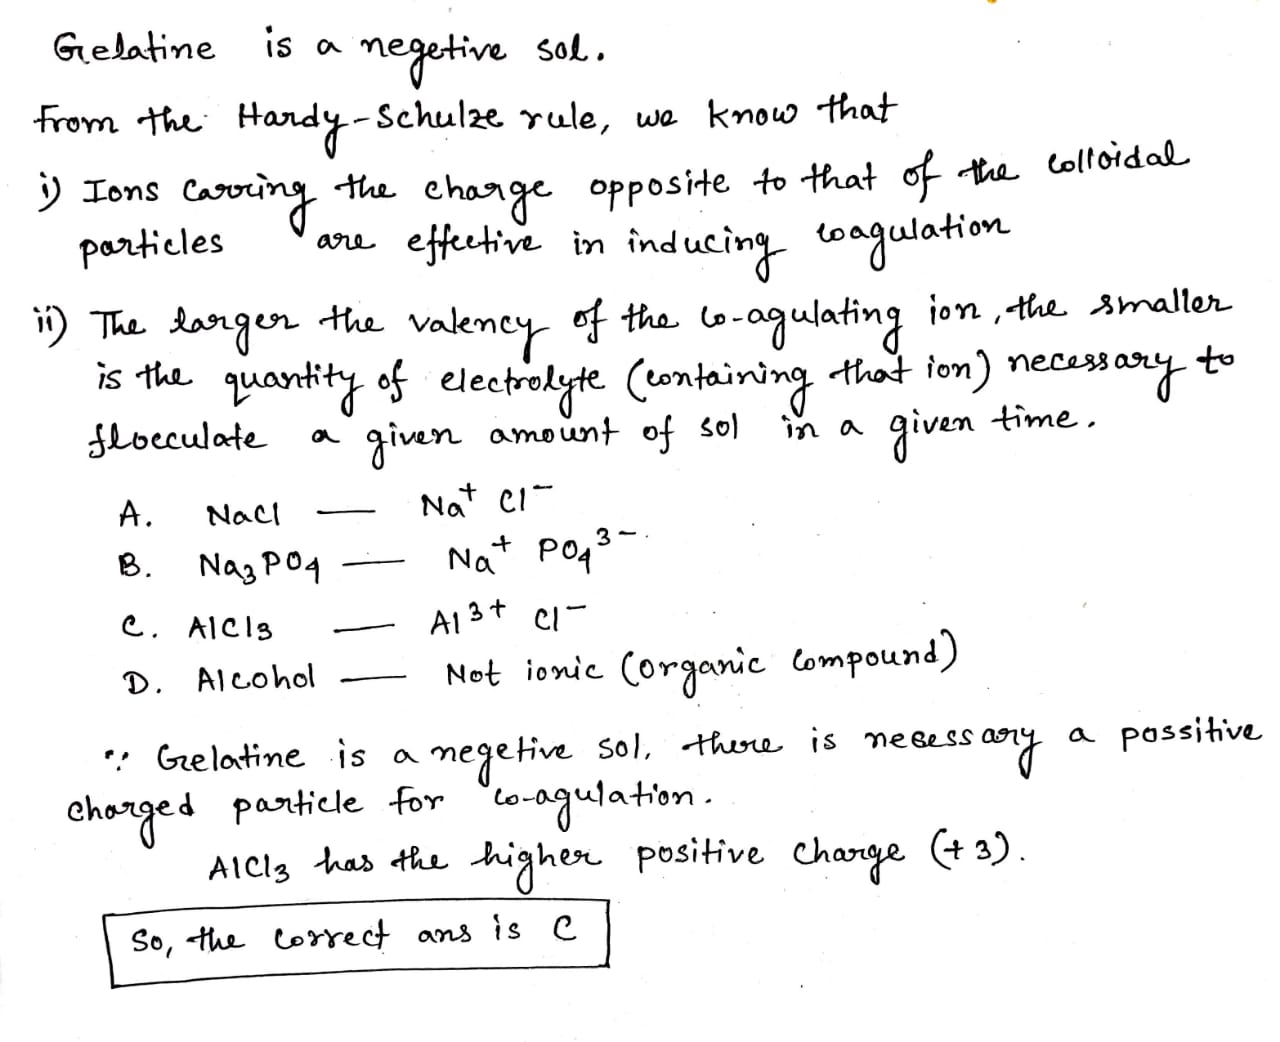 Gelatine is a negetive sol.
From the Hardy-Schulze rule, we know that
i) Ions carring the charge opposite to that of the colloidal
particles are effective in inducing coagulation
ii) The larger the valency of the co-agulating ion, the smaller
is the quantity of electrolyte (containing that ion) necessary to
flocculate a given amount of sol in a given time.
A. NaCl — Na⁺ Cl⁻
B. Na₃PO₄ — Na⁺ PO₄³⁻
C. AlCl₃ — Al³⁺ Cl⁻
D. Alcohol — Not ionic (organic compound)
∵ Gelatine is a negetive sol, there is necessary a possitive
charged particle for co-agulation.
AlCl₃ has the higher positive charge (+3).
So, the correct ans is C